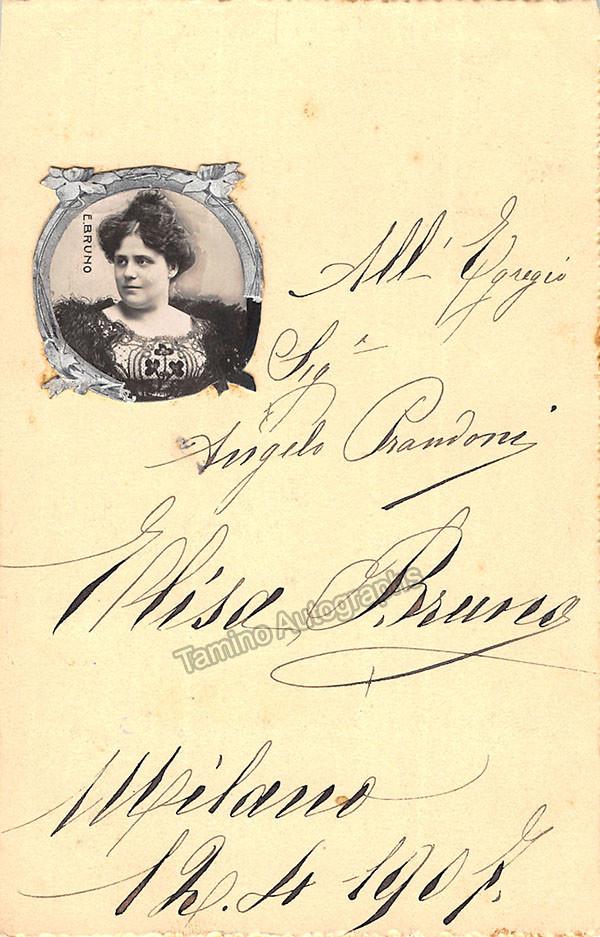 E. BRUNO
All' Egregio
Sigr
Angelo Prandoni
Elisa Bruno
Tamino Autographs
Milano
12. 4 - 1907.